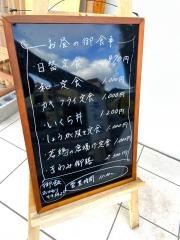 お昼の御食事
日替定食 970円
和定食 1,000円
かきフライ定食 1,000円
いくら丼 1,200円
しょうが焼き定食 1,000円
若鶏の唐揚げ定食 1,000円
きわみ御膳
営業時間 11:00~